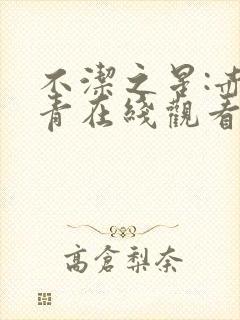 不潔之星:赤
青在綫觀看
高倉梨奈